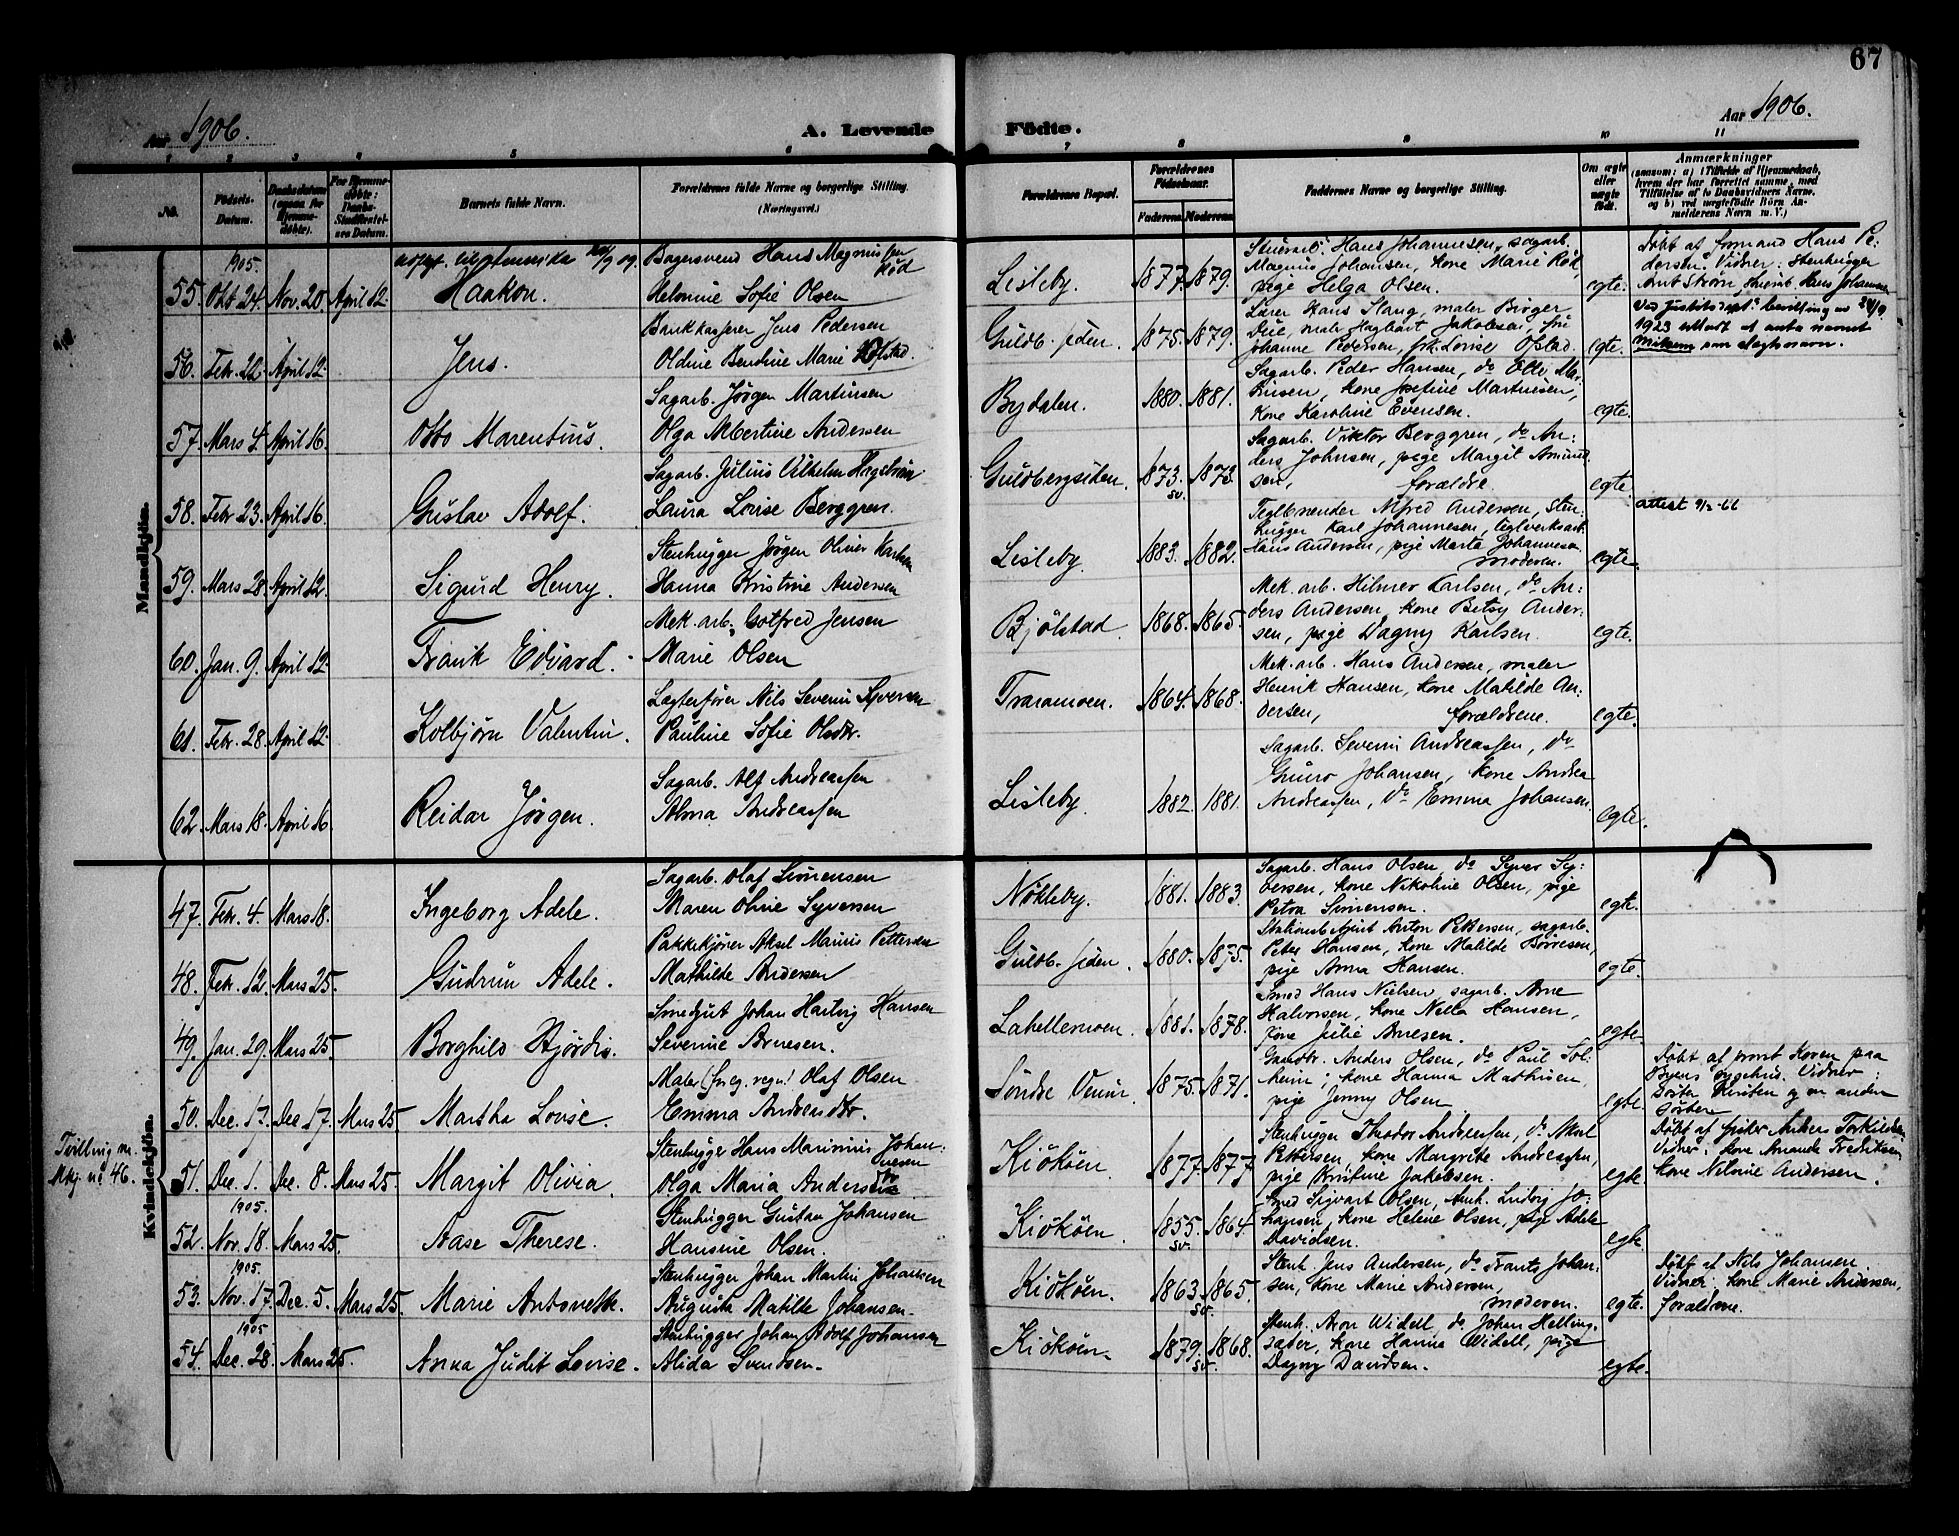 67
Aar 1906.
A. Levende Födte.
Aar 1906.
1 2 3 4 5 6 7 8 9 10 11
No.
Födsels-Datum.
Daabsdatum (ogsaa for Hjemme-döbte).
For Hjemme-döbte: Daabs-Stadfæstel-ses Datum.
Barnets fulde Navn.
Forældrenes fulde Navne og borgerlige Stilling.
(Næringsvei.)
Forældrenes Bopæl.
Forældrenes Födselsaar.
Faderens. Moderens.
Faddernes Navne og borgerlige Stilling.
Om ægte eller uægte födt.
Anmærkninger
(saasom: a) i Tilfælde af Hjemmedaab,
hvem der har forrettet samme, med
Tilföielse af to Daabsvidners Navne.
og b) ved uægtefödte Börn An-
melderens Navn m. V.)
Mandkjön.
1905.
55. Okt 24. Nov. 20. April 12. Haakon.
Bagersvend Hans Magnussen Röd
Helmine Sofie Olsen
Lisleby. 1877. 1879.
Hans Johannesen, sagarb.
Magnus Johansen, kone Marie Röd,
pige Helga Olsen.
egte.
Döbt af formand Hans Pe-
dersen. Vidner: Stenhugger
Arnt Ström Hans Johannesen
56. Febr. 22. April 12. Jens.
Bankkasserer Jens Pedersen
Oldine Bendine Marie Ofstad.
Guldb.siden. 1875. 1879.
Lærer Hans Slang, maler Birger
Due, maler Hagbart Jakobsen, fru
Johanne Pedersen, frk. Lovise Ofstad.
egte.
Ved justitsdept's bevilling av 28/9
1923 tillatt at anta navnet
som slegtsnavn.
57. Mars 4. April 16. Otto Marentius.
Sagarb. Jörgen Martinsen
Olga Albertine Andersen
Bydalen. 1880. 1881.
Sagarb. Peder Hansen, do Otto Mar-
tinsen, kone Josefine Martinsen,
kone Karoline Evensen.
egte.
58. Febr 23. April 16. Gustav Adolf.
Sagarb. Julius Vilhelm Hagström
Laura Lovise Berggren.
Guldbergsiden. 1873. sv. 1873.
Sagarb. Viktor Berggren, do An-
ders Johnsen, pige Margit Amund-
sen, forældre.
egte.
attest 9/2-66
59. Mars 28. April 12. Sigurd Henry.
Stenhugger Jörgen Oliver Karlsen
Hanna Kristine Andersen
Lisleby. 1883. 1882.
Teglbrænder Alfred Andersen, Sten-
hugger Karl Johannesen, teglverksarb.
Hans Andersen, pige Marta Johannesen
moderen.
egte.
60. Jan. 9. April 12. Frank Edvard.
Mek. arb. Gotfred Jensen
Marie Olsen
Bjölstad. 1868. 1865.
Mek. arb. Hilmer Karlsen, do An-
ders Andersen, kone Betsy Ander-
sen, pige Dagny Karlsen.
egte.
61. Febr. 28. April 12. Kolbjörn Valentin.
Lagterförer Nils Severin Syversen
Pauline Sofie Olsdtr.
Traramoen. 1864. 1868.
Mek. arb. Hans Andersen, maler
Henrik Hansen, kone Matilde An-
dersen, forældrene.
egte.
62. Mars 18. April 16. Reidar Jörgen.
Sagarb. Alf Andreassen
Alma Andreassen
Lisleby. 1882. 1881.
Sagarb. Severin Andreassen, do
Johansen, kone Andrea
Andreassen, do Emma Johansen.
egte.
Kvindekjön.
47. Febr. 4. Mars 18. Ingeborg Adele.
Sagarb. Olaf Simensen
Maren Oline Syversen
Nökleby. 1881. 1883.
Sagarb. Hans Olsen, do Syver Sy-
versen, kone Nikoline Olsen, pige
Petra Simensen.
egte.
48. Febr. 12. Mars 25. Gudrun Adele.
Pakkekjörer Aksel Marius Pettersen
Mathilde Andersen
Guldb.siden. 1880. 1875.
Stationsbetjent Anton Pettersen, sagarb.
Peter Hansen, kone Matilde Börresen,
pige Anna Hansen.
egte.
49. Jan. 29. Mars 25. Borghild Hjördis.
Smedgut Johan Hartvig Hansen
Severine Arnesen.
Lahellemoen. 1881. 1878.
Smed Hans Nielsen sagarb. Arne
Halvorsen, kone Nilla Hansen,
kone Julie Arnesen.
egte.
50. Dec. 17. Dec. 17. Mars 25. Martha Lovise.
Maler Olaf Olsen
Emma Andreasdtr.
Söndre Venin. 1875. 1871.
Gaardbr. Anders Olsen, do Paul Sol-
heim, kone Hanna Mathisen,
pige Jenny Olsen
egte.
Döbt af provst Koren paa
Byens sygehus. Vidner:
Söster Kirsten og en anden
söster
Tvilling m. Mkj. no 46.
51. Dec. 1. Dec. 8. Mars 25. Margit Olivia.
Stenhugger Hans Marinius Johan-
nesen
Olga Maria Andersen
Kiököen. 1877. 1877.
Stenhugger Theodor Andreassen, do Aksel
Pettersen, kone Margrete Andreassen,
pige Kristine Jakobsen.
egte.
Döbt af Anders Torkildsen
Vidner: kone Amande Fredriksen
kone Nilsine Andersen.
1905.
52. Nov. 18. Mars 25. Aase Therese.
Stenhugger Gustav Johansen
Hansine Olsen.
Kiököen. 1855. sv. 1864.
Smed Sigvart Olsen, Arb. Ludvig Jo-
hansen, kone Helene Olsen, pige Adele
Davidsen.
egte.
1905.
53. Nov. 17. Dec. 5. Mars 25. Marie Antonette.
Stenhugger Johan Martin Johansen
Augusta Matilde Johansen.
Kiököen. 1863. sv. 1865.
Stenh. Jens Andersen, do Frants Johan-
sen, kone Marie Andersen,
moderen.
egte.
Döbt af Nils Johansen.
Vidner: kone Marie Andersen,
forældrene.
1905
54. Dec. 28. Mars 25. Anna Judit Lovise.
Stenhugger Johan Adolf Johansen
Alida Svendsen.
Kiököen. 1879. sv. 1868.
Stenh. Aron Widell, do Johan Helling-
sæter, kone Hanna Widell, pige
Dagny Davidsen.
egte.